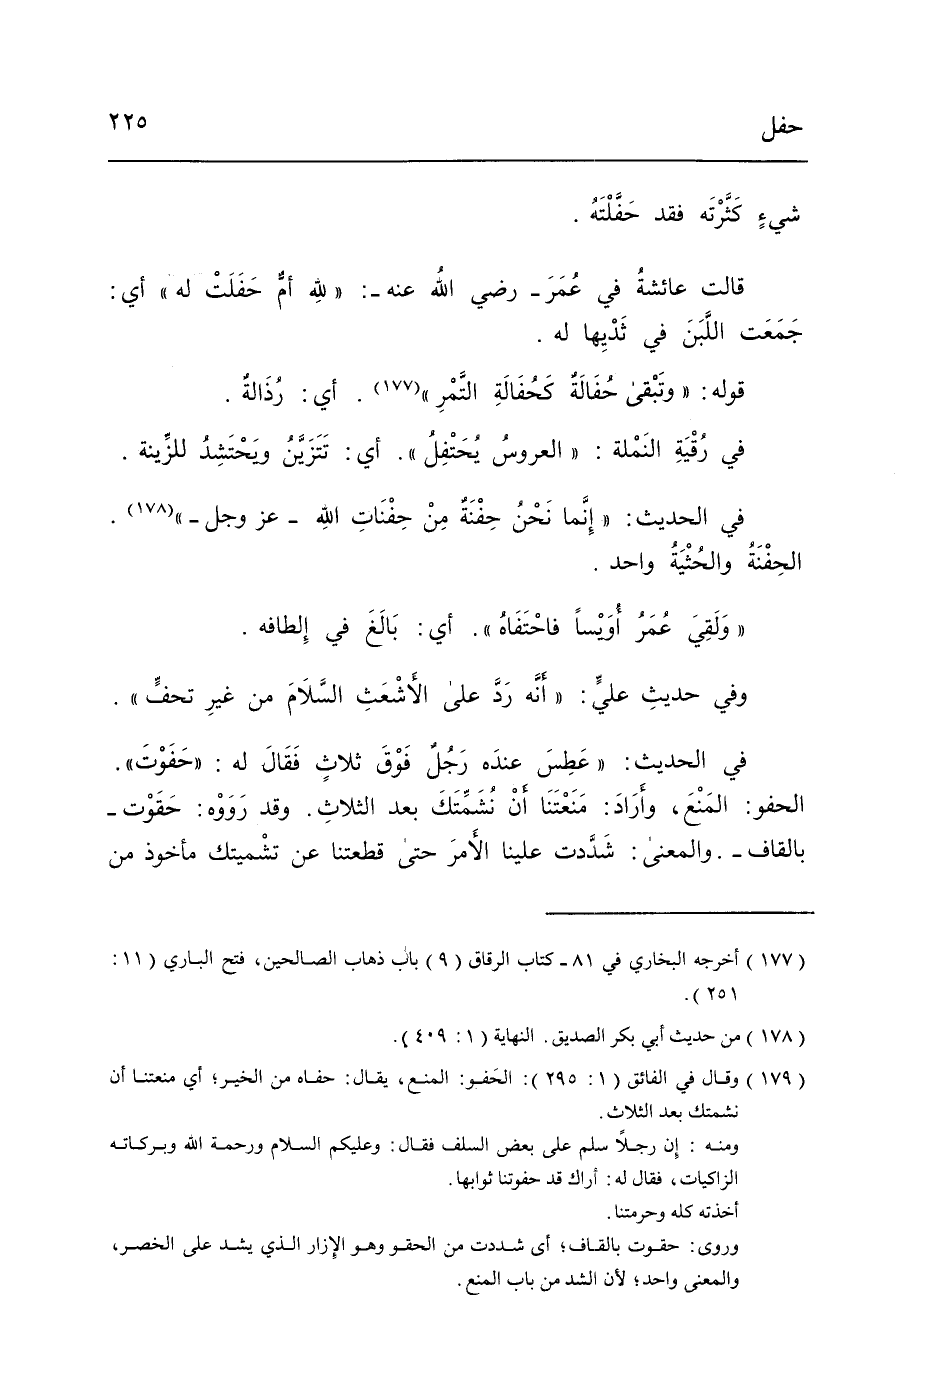 حفل
٢٢٥
شيءٍ كَثَّرْتَه فقد حَفَّلْتَهُ .
قالت عائشةُ في عُمَرَ ـ رضي اللُه عنه ـ: « للهِ أمٌّ حَفَلَتْ له » أي:
جَمَعَت اللَّبَنَ في ثَدْيِها له .
قوله: « وتَبْقىٰ حُفَالَةٌ كَحُفَالَةِ التَّمْرِ »(١٧٧) . أي: رُذَالةٌ .
في رُقْيَةِ النَملة : « العروسُ يُحَتْفِلُ ». أي: تَتَزَيَّنُ ويَحْتَشِدُ للزِّينة .
في الحديث: « إنَّما نَحْنُ حِفْنَةٌ مِنْ حِفْنَاتِ اللهِ ـ عز وجل ـ »(١٧٨) .
الحِفْنَةُ والحُثْيَةُ واحد .
« وَلَقِيَ عُمَرُ أُوَيْساً فاحْتَفَاهُ ». أي: بَالَغَ في إلطافه .
وفي حديثِ عليٍّ: « أَنَّه رَدَّ علىٰ الأَشْعَثِ السَّلَامَ من غيرِ تحفٍّ » .
في الحديث: « عَطِسَ عندَه رَجُلٌ فَوْقَ ثلاثٍ فَقَالَ له : «حَفَوْتَ».
الحفو: المَنْعَ، وأَرَادَ: مَنَعْتَنَا أَنْ نُشَمِّتَكَ بعد الثلاثِ. وقد رَوَوْه: حَقَوْت ـ
بالقاف ـ .والمعنىٰ: شَدَّدت علينا الأَمرَ حتىٰ قطعتنا عن تشْميتك مأخوذ من
( ١٧٧ ) أخرجه البخاري في ٨١ ـ كتاب الرقاق ( ٩ ) باب ذهاب الصالحين، فتح الباري ( ١١ :
٢٥١ ).
( ١٧٨ ) من حديث أبي بكر الصديق. النهاية ( ١ : ٤٠٩ ).
( ١٧٩ ) وقال في الفائق ( ١ : ٢٩٥ ): الحَفو: المنع، يقال: حفاه من الخير؛ أي منعتنا أن
نشمتك بعد الثلاث.
ومنه : إن رجلاً سلم على بعض السلف فقال: وعليكم السلام ورحمة الله وبركاته
الزاكيات، فقال له: أراك قد حفوتنا ثوابها.
أخذته كله وحرمتنا.
وروى: حقوت بالقاف؛ أى شددت من الحقو وهو الإزار الذي يشد على الخصر،
والمعنى واحد؛ لأن الشد من باب المنع.